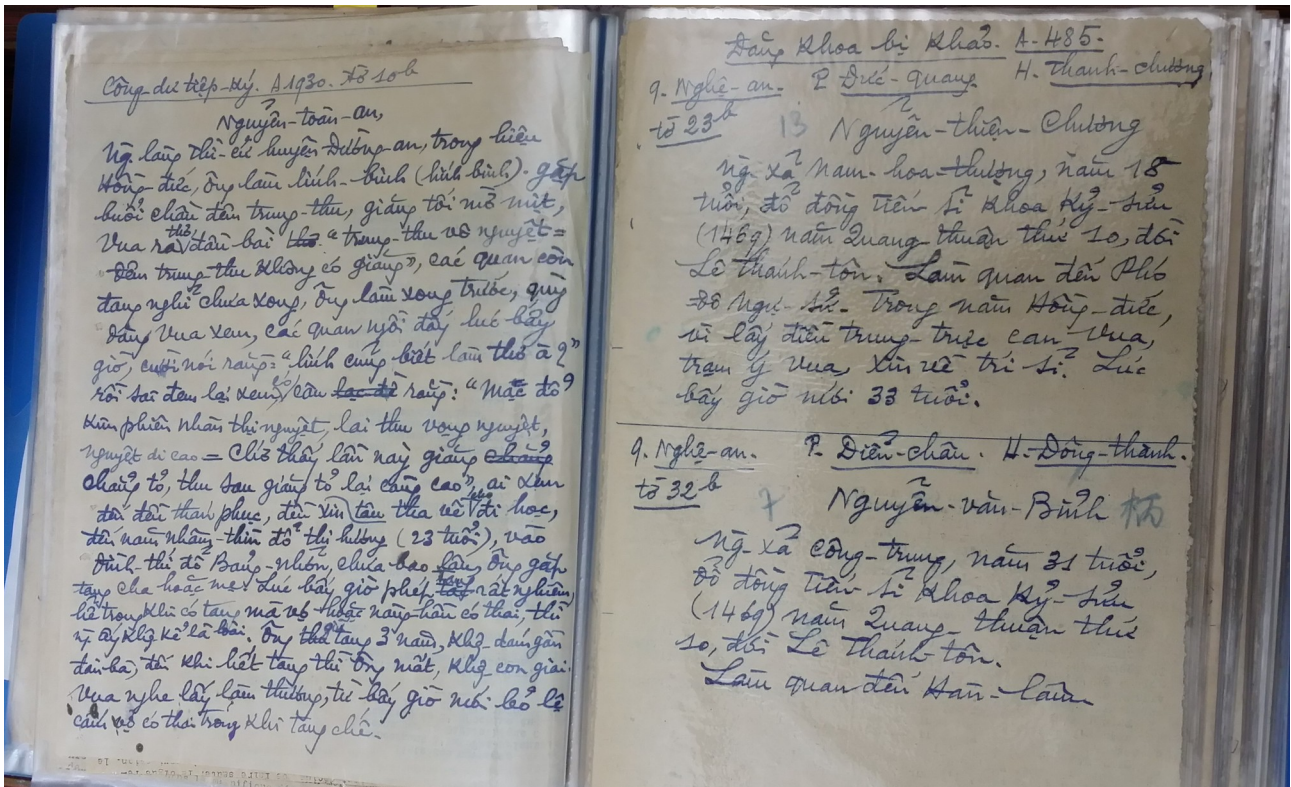 Công-dư tiệp-ký. A1930. tờ 10b
Nguyễn-toàn-an,
Ng. làng thì-cử huyện Đường-an, trong hiệu
Hồng-đức, ông làm lính-bính (lính bình). gặp
buổi chầu đêm trung-thu, giăng tối mờ mịt,
Vua ra thơ đầu bài thơ "trung-thu vô nguyệt =
đêm trung-thu không có giăng", các quan còn
đang nghĩ chưa xong, ông làm xong trước, quỳ
dâng vua xem, các quan ngồi đấy lúc bấy
giờ, cười nói rằng: "lính cũng biết làm thơ à?"
rồi sai đem lại xem, có câu rằng: "Mạc đố
kim phiên nhàn thị nguyệt, lai thu vọng nguyệt,
nguyệt di cao = Chớ thấy lần này giăng chẳng
chẳng tỏ, thu sau giăng tỏ lại càng cao", ai xem
đến đều thán phục, đến xin tâu tha về cho đi học,
đến năm nhâm-thìn đỗ thi hương (23 tuổi), vào
Đình-thí đỗ Bảng-nhỡn, chưa bao lâu, ông gặp
tang cha hoặc mẹ. Lúc bấy giờ phép tang rất nghiêm,
hễ trong khi có tang mà vợ hoặc nàng-hầu có thai, thì
bị ấy khg kể là loài. Ông tang 3 năm, khg dám gần
đàn-bà, đến khi hết tang thì ông mất, khg con giai.
Vua nghe lấy làm thương, từ bấy giờ mới bỏ lệ
cấm vợ có thai trong khi tang chế.
Đăng khoa bị khảo. A-485.
9- Nghệ-an. P. Đức-quang. H- Thanh-chương
tờ 23b 13 Nguyễn-thiện-Chương
Ng. xã Nam-hoa-thượng, năm 18
tuổi, đỗ đồng tiến sĩ khoa Kỷ-sửu
(1469) năm Quang-thuận thứ 10, đời
Lê thánh-tôn. Làm quan đến Phó
đô ngự-sử. Trong năm Hồng-đức,
vì lấy điều trung-trực can vua,
trạm ý vua, xin về trí sĩ. Lúc
bấy giờ mới 33 tuổi.
9. Nghệ-an. P. Diễn-châu. H-Đông-thành.
tờ 32b 7 Nguyễn-văn-Bính 柄
Ng. xã Công-trung, năm 31 tuổi,
Đỗ đồng tiến sĩ khoa Kỷ-sửu
(1469) năm Quang-thuận thứ
10, đời Lê Thánh-tôn.
Làm quan đến Hàn-lâm